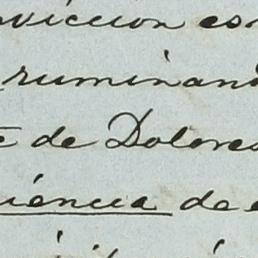 viccion es
ruminan
de Dolores
iencia de